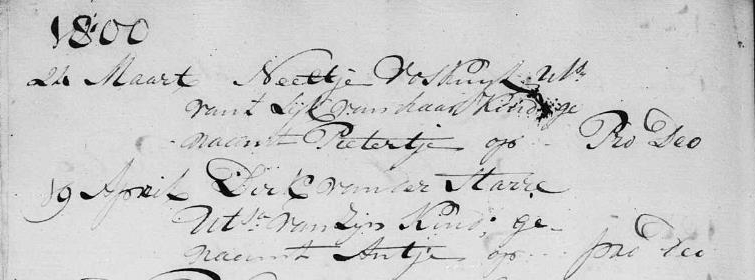 1800
24 Maart Neeltje Voskuyl Uts
vant Lijk van haar Kind ge
naamt Pietertje op - Pro Deo
19 April Dirk van der Starre
Uts van Zijn Kind ge-
naamt Antje op - pro Deo